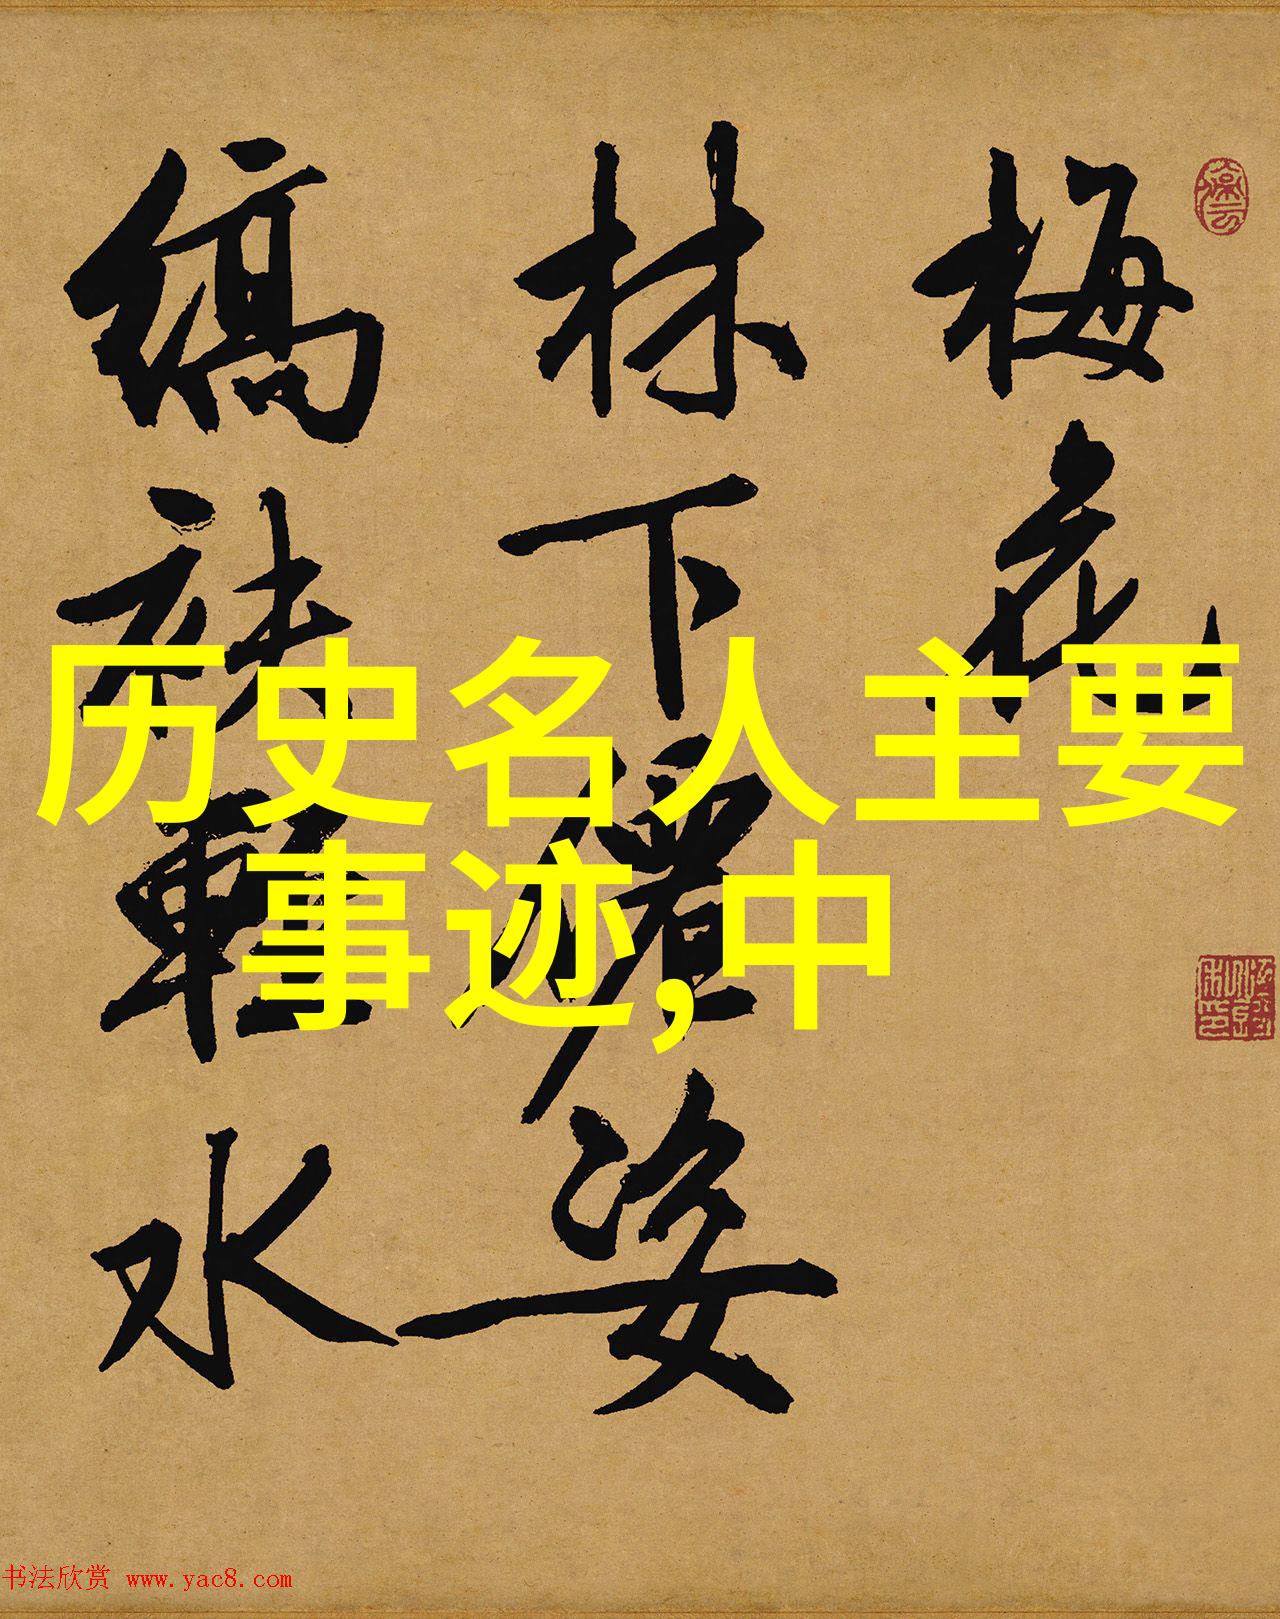 梅花
林下仙姿
缟袂轻水
历史名人主要
事迹,中
书法欣赏 www.yac8.com